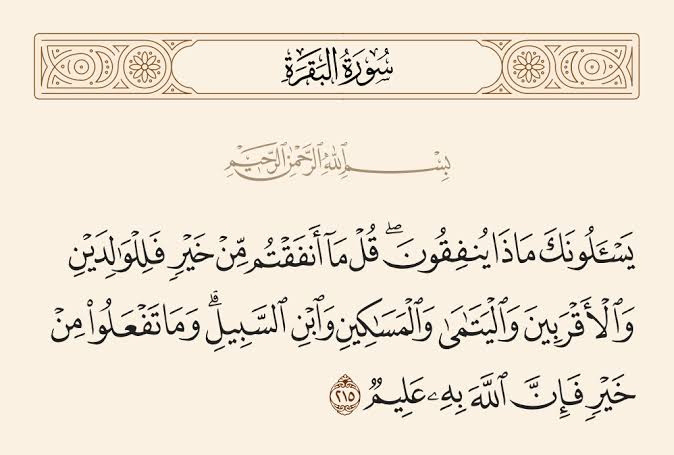 سُورَةُ البَقَرَةِ
بِسْمِ ٱللَّهِ ٱلرَّحْمَٰنِ ٱلرَّحِيمِ
يَسْـَٔلُونَكَ مَاذَا يُنفِقُونَۖ قُلْ مَآ أَنفَقْتُم مِّنْ خَيْرٍ فَلِلْوَٰلِدَيْنِ
وَٱلْأَقْرَبِينَ وَٱلْيَتَٰمَىٰ وَٱلْمَسَٰكِينِ وَٱبْنِ ٱلسَّبِيلِۗ وَمَا تَفْعَلُوا۟ مِنْ
خَيْرٍ فَإِنَّ ٱللَّهَ بِهِۦ عَلِيمٌ ٢١٥